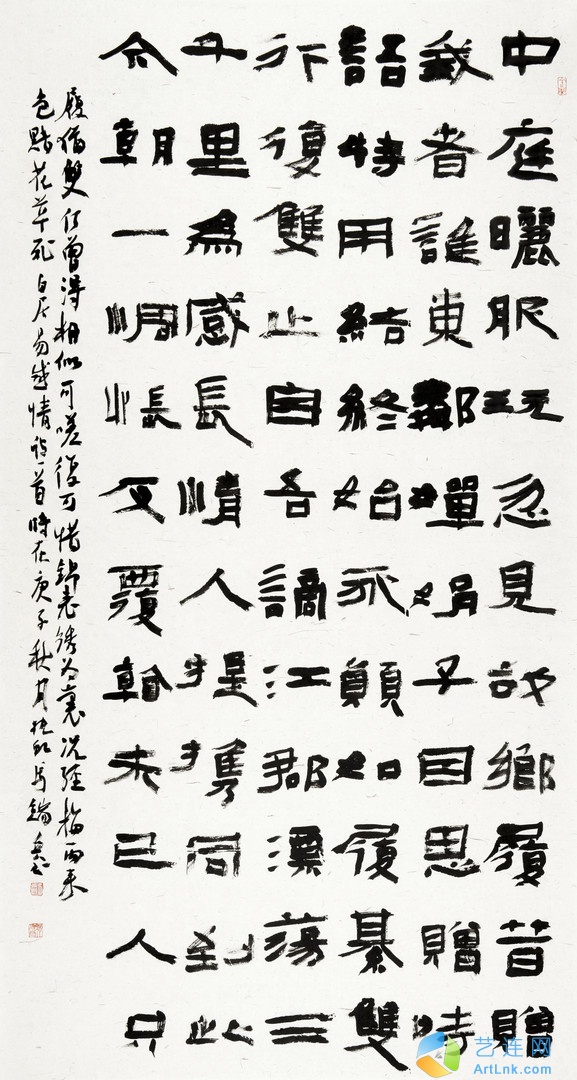 中庭曬服玩忽見故鄉履昔贈
我者誰東鄰嬋娟子因思贈時
語特用結終始永願如履綦雙
行復雙止自吾謫江郡漂蕩三
千里為感長情人提攜同到此
今朝一惆悵反覆看未已人只
履猶雙何曾得相似可嗟復可惜錦表繡為裏況經梅雨來
色黯花草死白居易感情詩一首時在庚子秋月
艺连网
ArtLnk.com